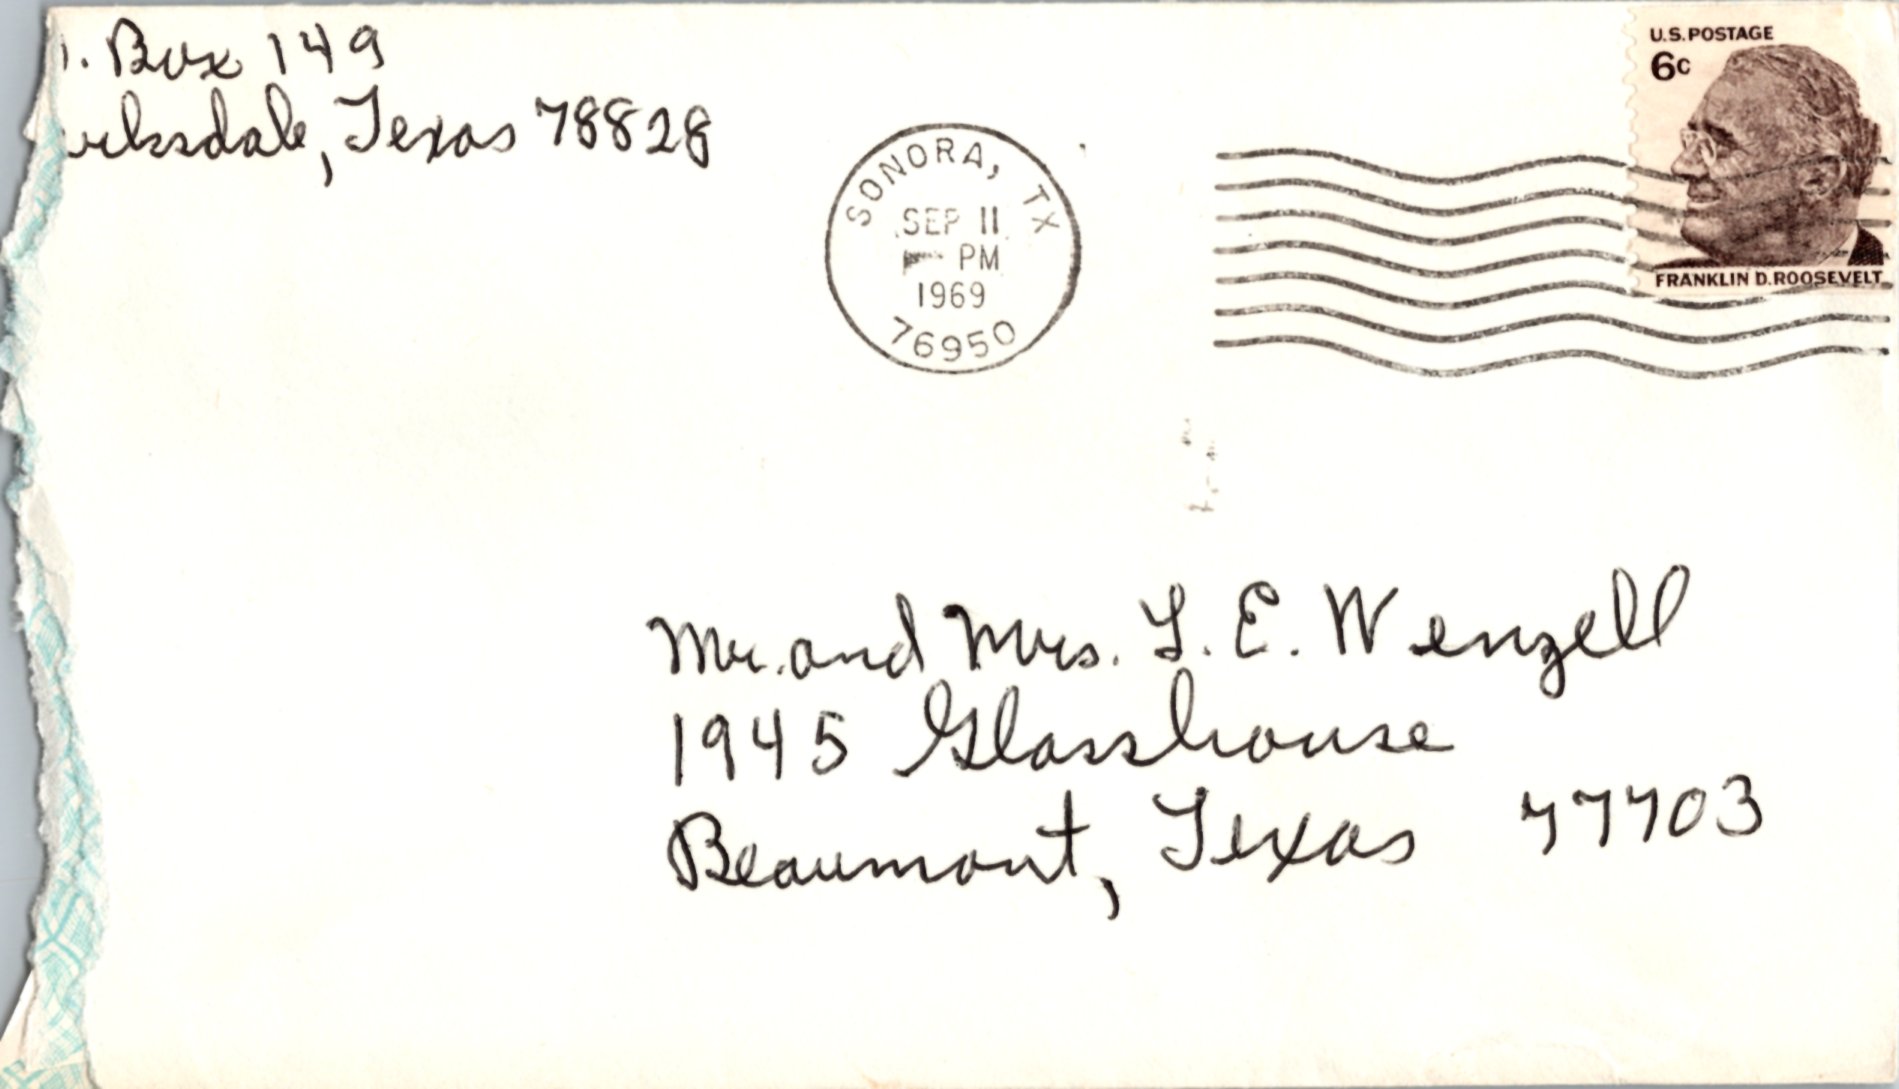 . Box 149
rksdale, Texas 78828
U.S. POSTAGE
6c
FRANKLIN D. ROOSEVELT
SONORA, TX
SEP 11
PM
1969
76950
Mr. and Mrs. L. E. Wenzell
1945 Glasshouse
Beaumont, Texas 77703